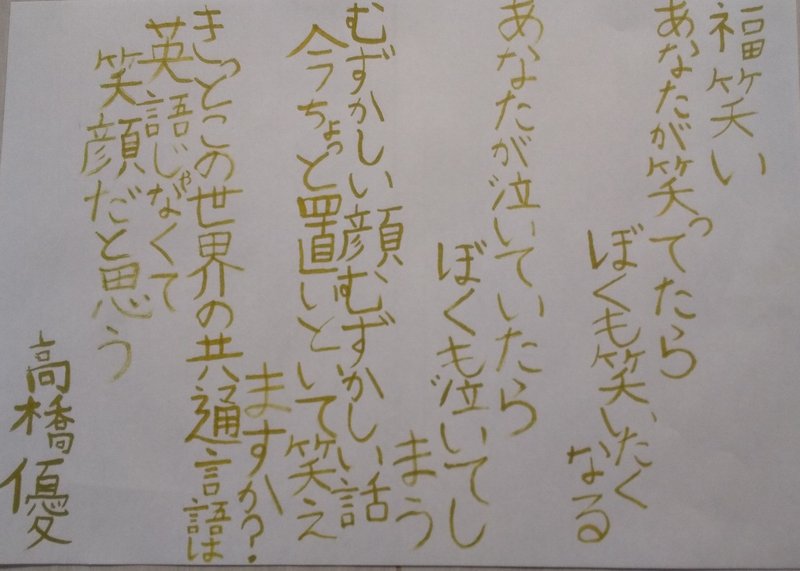 福笑い
あなたが笑ってたら
ぼくも笑いたく
なる
あなたが泣いていたら
ぼくも泣いてし
まう
むずかしい顔むずかしい話
今ちょっと置いといて笑え
ますか?
きっとこの世界の共通言語は
英語じゃなくて
笑顔だと思う
高橋優